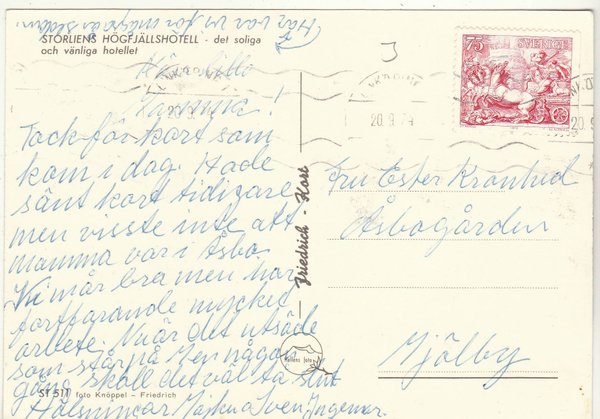 Här var vi för många år sedan.
STORLIENS HÖGFJÄLLSHOTELL - det soliga
och vänliga hotellet
75 SVERIGE
20.9.74
Kära lilla
mamma!
Tack för kort som
kom i dag. Hade
sänt kort tidigare
men visste inte att
mamma var i Åsbo.
Vi mår bra men har
fortfarande mycket
arbete. Nu är det utsäde
som står på. Men någon
gång skall det väl ta slut
Hälsningar Majken Sven Ingemar.
St 511 foto Knöppel - Friedrich
Friedrich - Kort
Fru Ester Kronhed
Åsbogården
Mjölby